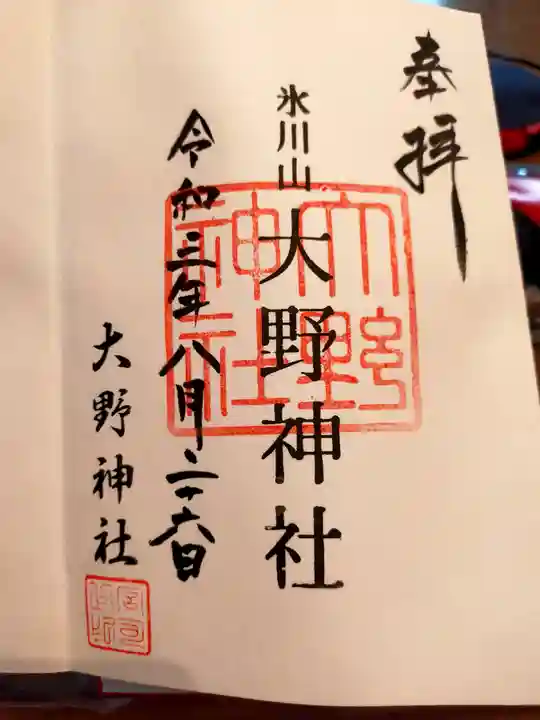 奉拝
氷川山
大野神社
大野神社
令和三年八月二十六日
大野神社